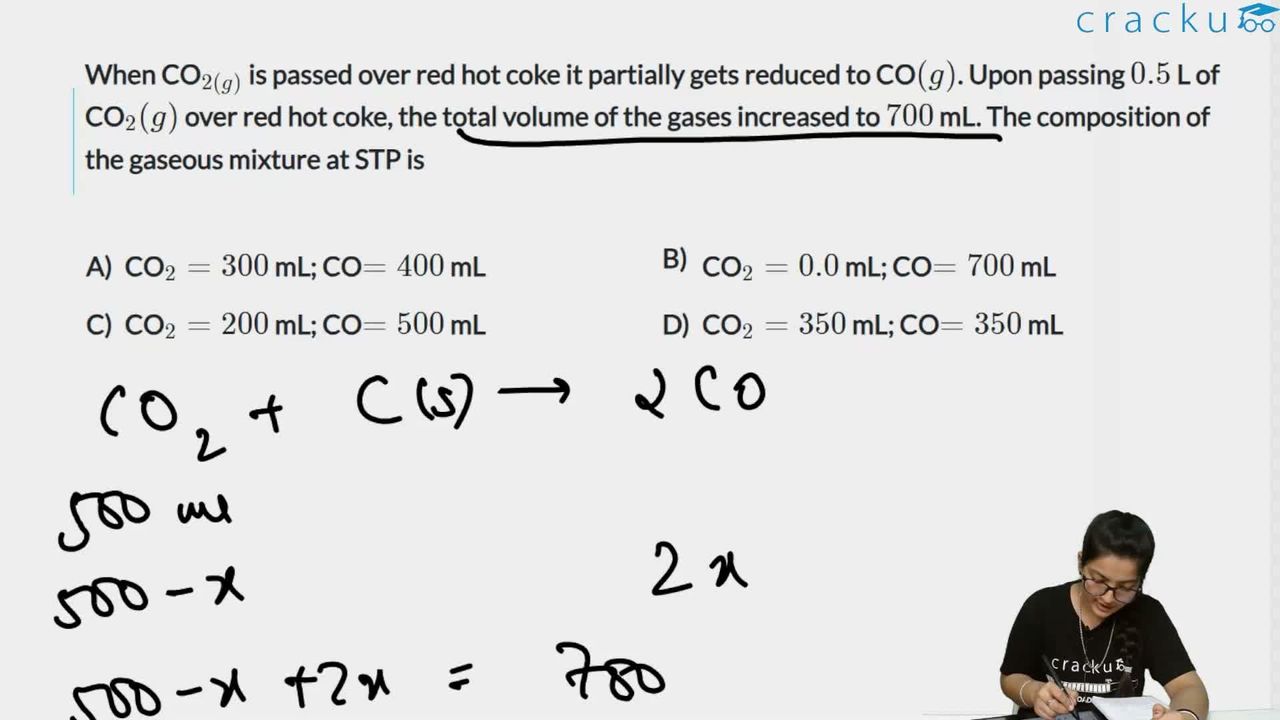 cracku
When CO₂(g) is passed over red hot coke it partially gets reduced to CO(g). Upon passing 0.5 L of
CO₂(g) over red hot coke, the total volume of the gases increased to 700 mL. The composition of
the gaseous mixture at STP is
A) CO₂ = 300 mL; CO= 400 mL
B) CO₂ = 0.0 mL; CO= 700 mL
C) CO₂ = 200 mL; CO= 500 mL
D) CO₂ = 350 mL; CO= 350 mL
CO₂ + C(s) → 2CO
500 ml
500 - x 2x
500 - x + 2x = 700
cracku